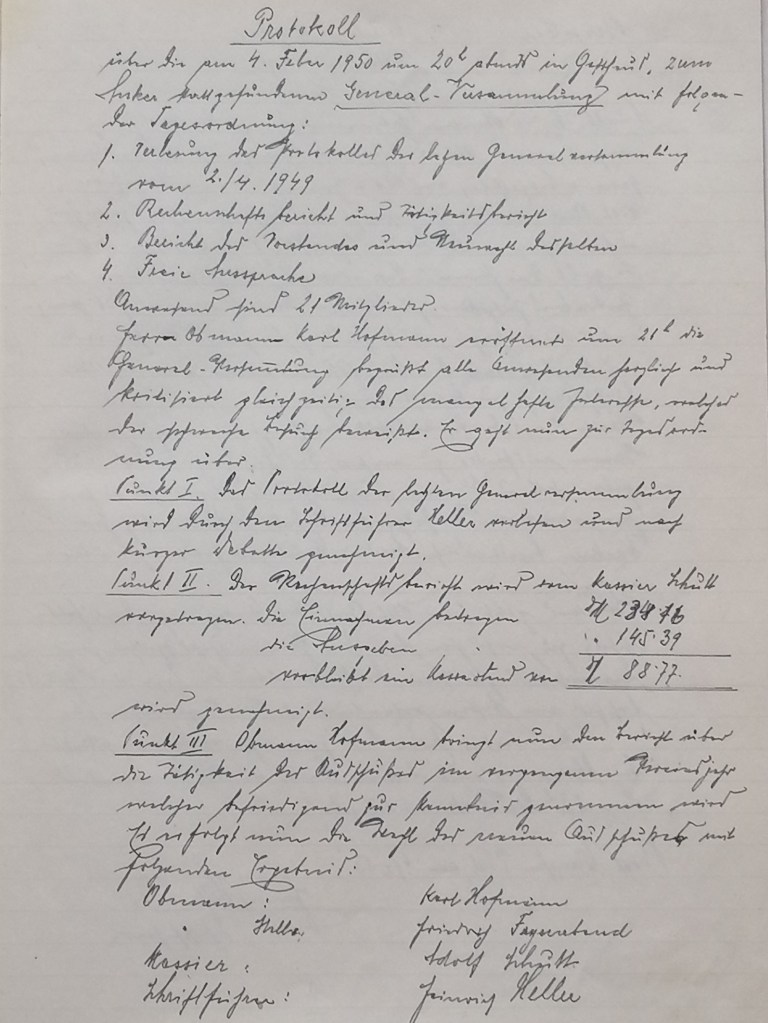 Protokoll
über die am 4. Feber 1950 um 20h abends in Gasthaus, zum
Anker stattgefundenen General-Versammlung mit folgen-
der Tagesordnung:
1. Verlesung des Protokolles der letzten Generalversammlung
vom 2./4. 1949
2. Rechenschaftsbericht und Tätigkeitsbericht
3. Bericht des Vorstandes und Neuwahl desselben
4. Freie Aussprache
Anwesend sind 21 Mitglieder.
Herr Obmann Karl Hofmann eröffnet um 21h die
General-Versammlung begrüßt alle Anwesenden herzlich und
kritisiert gleichzeitig das mangelhafte Interesse, welches
der schwache Besuch beweißt. Er geht nun zur Tagesord-
nung über.
Punkt I. Das Protokoll der letzten Generalversammlung
wird durch den Schriftführer Heller verlesen und nach
kurzer Debatte genehmigt.
Punkt II. Der Rechenschaftsbericht wird vom Kassier Schütt
vorgetragen. Die Einnahmen betragen
die Ausgaben 145.39
verbleibt ein Kassastand von 88.77.
wird genehmigt.
Punkt III Obmann Hofmann bringt nun den Bericht über
die Tätigkeit des Ausschußes im vergangenen Vereinsjahr
welcher befriedigend zur Kenntnis genommen wird
Es erfolgt nun die Wahl des neuen Ausschußes mit
folgendem Ergebnis:
Obmann: Karl Hofmann
" Stellv. Friedrich Feyerabend
Kassier: Adolf Schütt
Schriftführer: Heinrich Heller